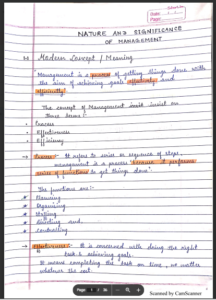 Date
Page
NATURE AND SIGNIFICANCE
OF MANAGEMENT
Modern Concept / Meaning
Management is a process of getting things done with
the aim of achieving goals effectively and
efficiently.
The concept of Management insist on
three terms:-
Process
Effectiveness
Efficiency
Process:- It refers to series or sequence of steps.
management is a process because it performs
series of functions to get things done.
The functions are:-
Planning
Organising
Staffing
Directing and
Controlling.
Effectiveness:- It is concerned with doing the right
task & achieving goals.
It means completing the task on time, no matter
whatever the cost.
Page
Scanned by CamScanner